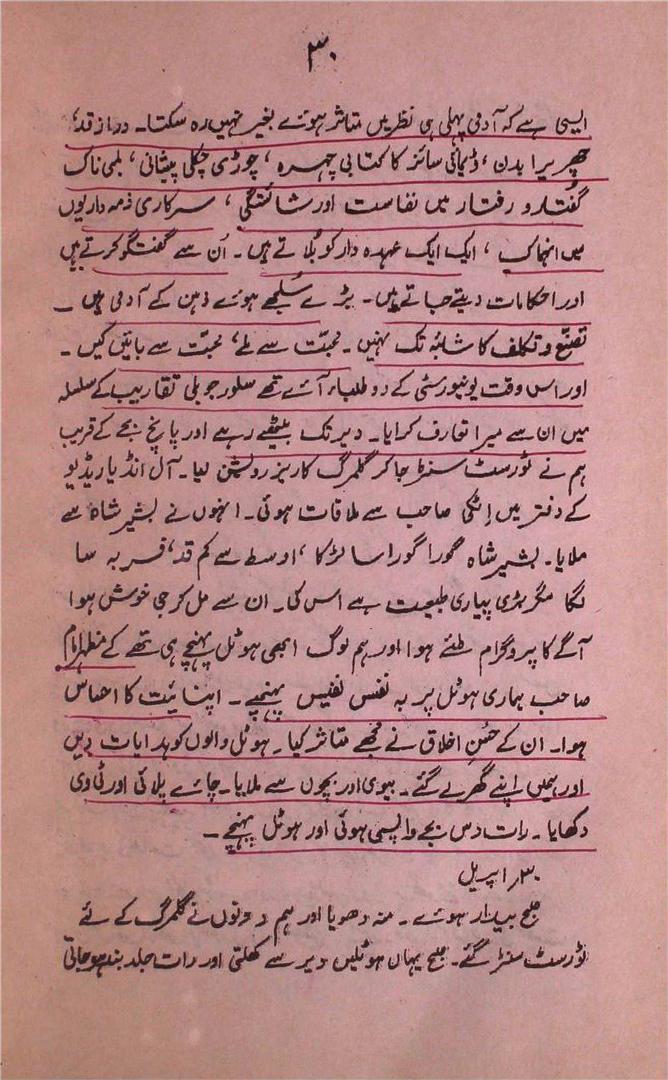 ۳۰
ایسی ہے کہ آدمی پہلی ہی نظر میں متاثر ہوئے بغیر نہیں رہ سکتا۔ دراز قد،
چھریرا بدن، ڈیمائی سائز کا کتابی چہرہ، چوڑی چکلی پیشانی، لمبی ناک
گفتار و رفتار میں نفاست اور شائستگی، سرکاری ذمہ داریوں
میں انہماک، ایک ایک عہدہ دار کو بلاتے ہیں۔ اُن سے گفتگو کرتے ہیں
اور احکامات دیتے جاتے ہیں۔ بڑے سُلجھے ہوئے ذہن کے آدمی ہیں۔
تصنّع و تکلف کا شائبہ تک نہیں۔ محبّت سے ملے، محبّت سے باتیں کیں۔
اور اس وقت یونیورسٹی کے دو طلباء آئے تھے سلور جوبلی تقاریب کے سلسلہ
میں ان سے میرا تعارف کرایا۔ دیر تک بیٹھے رہے اور پانچ بجے کے قریب
ہم نے ٹورسٹ سنٹر جا کر گلمرگ کا ریزرویشن لیا۔ آل انڈیا ریڈیو
کے دفتر میں اٹکی صاحب سے ملاقات ہوئی۔ انہوں نے بشیر شاہ سے
ملایا۔ بشیر شاہ گورا گورا سا لڑکا، اوسط سے کم قد، فربہ سا
لگا مگر بڑی پیاری طبیعت ہے اس کی۔ ان سے مل کر جی خوش ہوا
آگے کا پروگرام طئے ہوا اور ہم لوگ ابھی ہوٹل پہنچے ہی تھے کے مظہر امام
صاحب ہماری ہوٹل پر بہ نفس نفیس پہنچے۔ اپنائیت کا احساس
ہوا۔ ان کے حُسنِ اخلاق نے مجھے متاثر کیا۔ ہوٹل والوں کو ہدایات دیں
اور ہمیں اپنے گھر لے گئے۔ بیوی اور بچوں سے ملایا۔ چائے پلائی اور ٹی وی
دکھایا۔ رات دس بجے واپسی ہوئی اور ہوٹل پہنچے۔
۳۰؍ اپریل
صبح بیدار ہوئے۔ منہ دھویا اور ہم دونوں نے گلمرگ کے لئے
ٹورسٹ سنٹر گئے۔ صبح یہاں ہوٹلیں دیر سے کھلتی اور رات جلد بند ہو جاتی